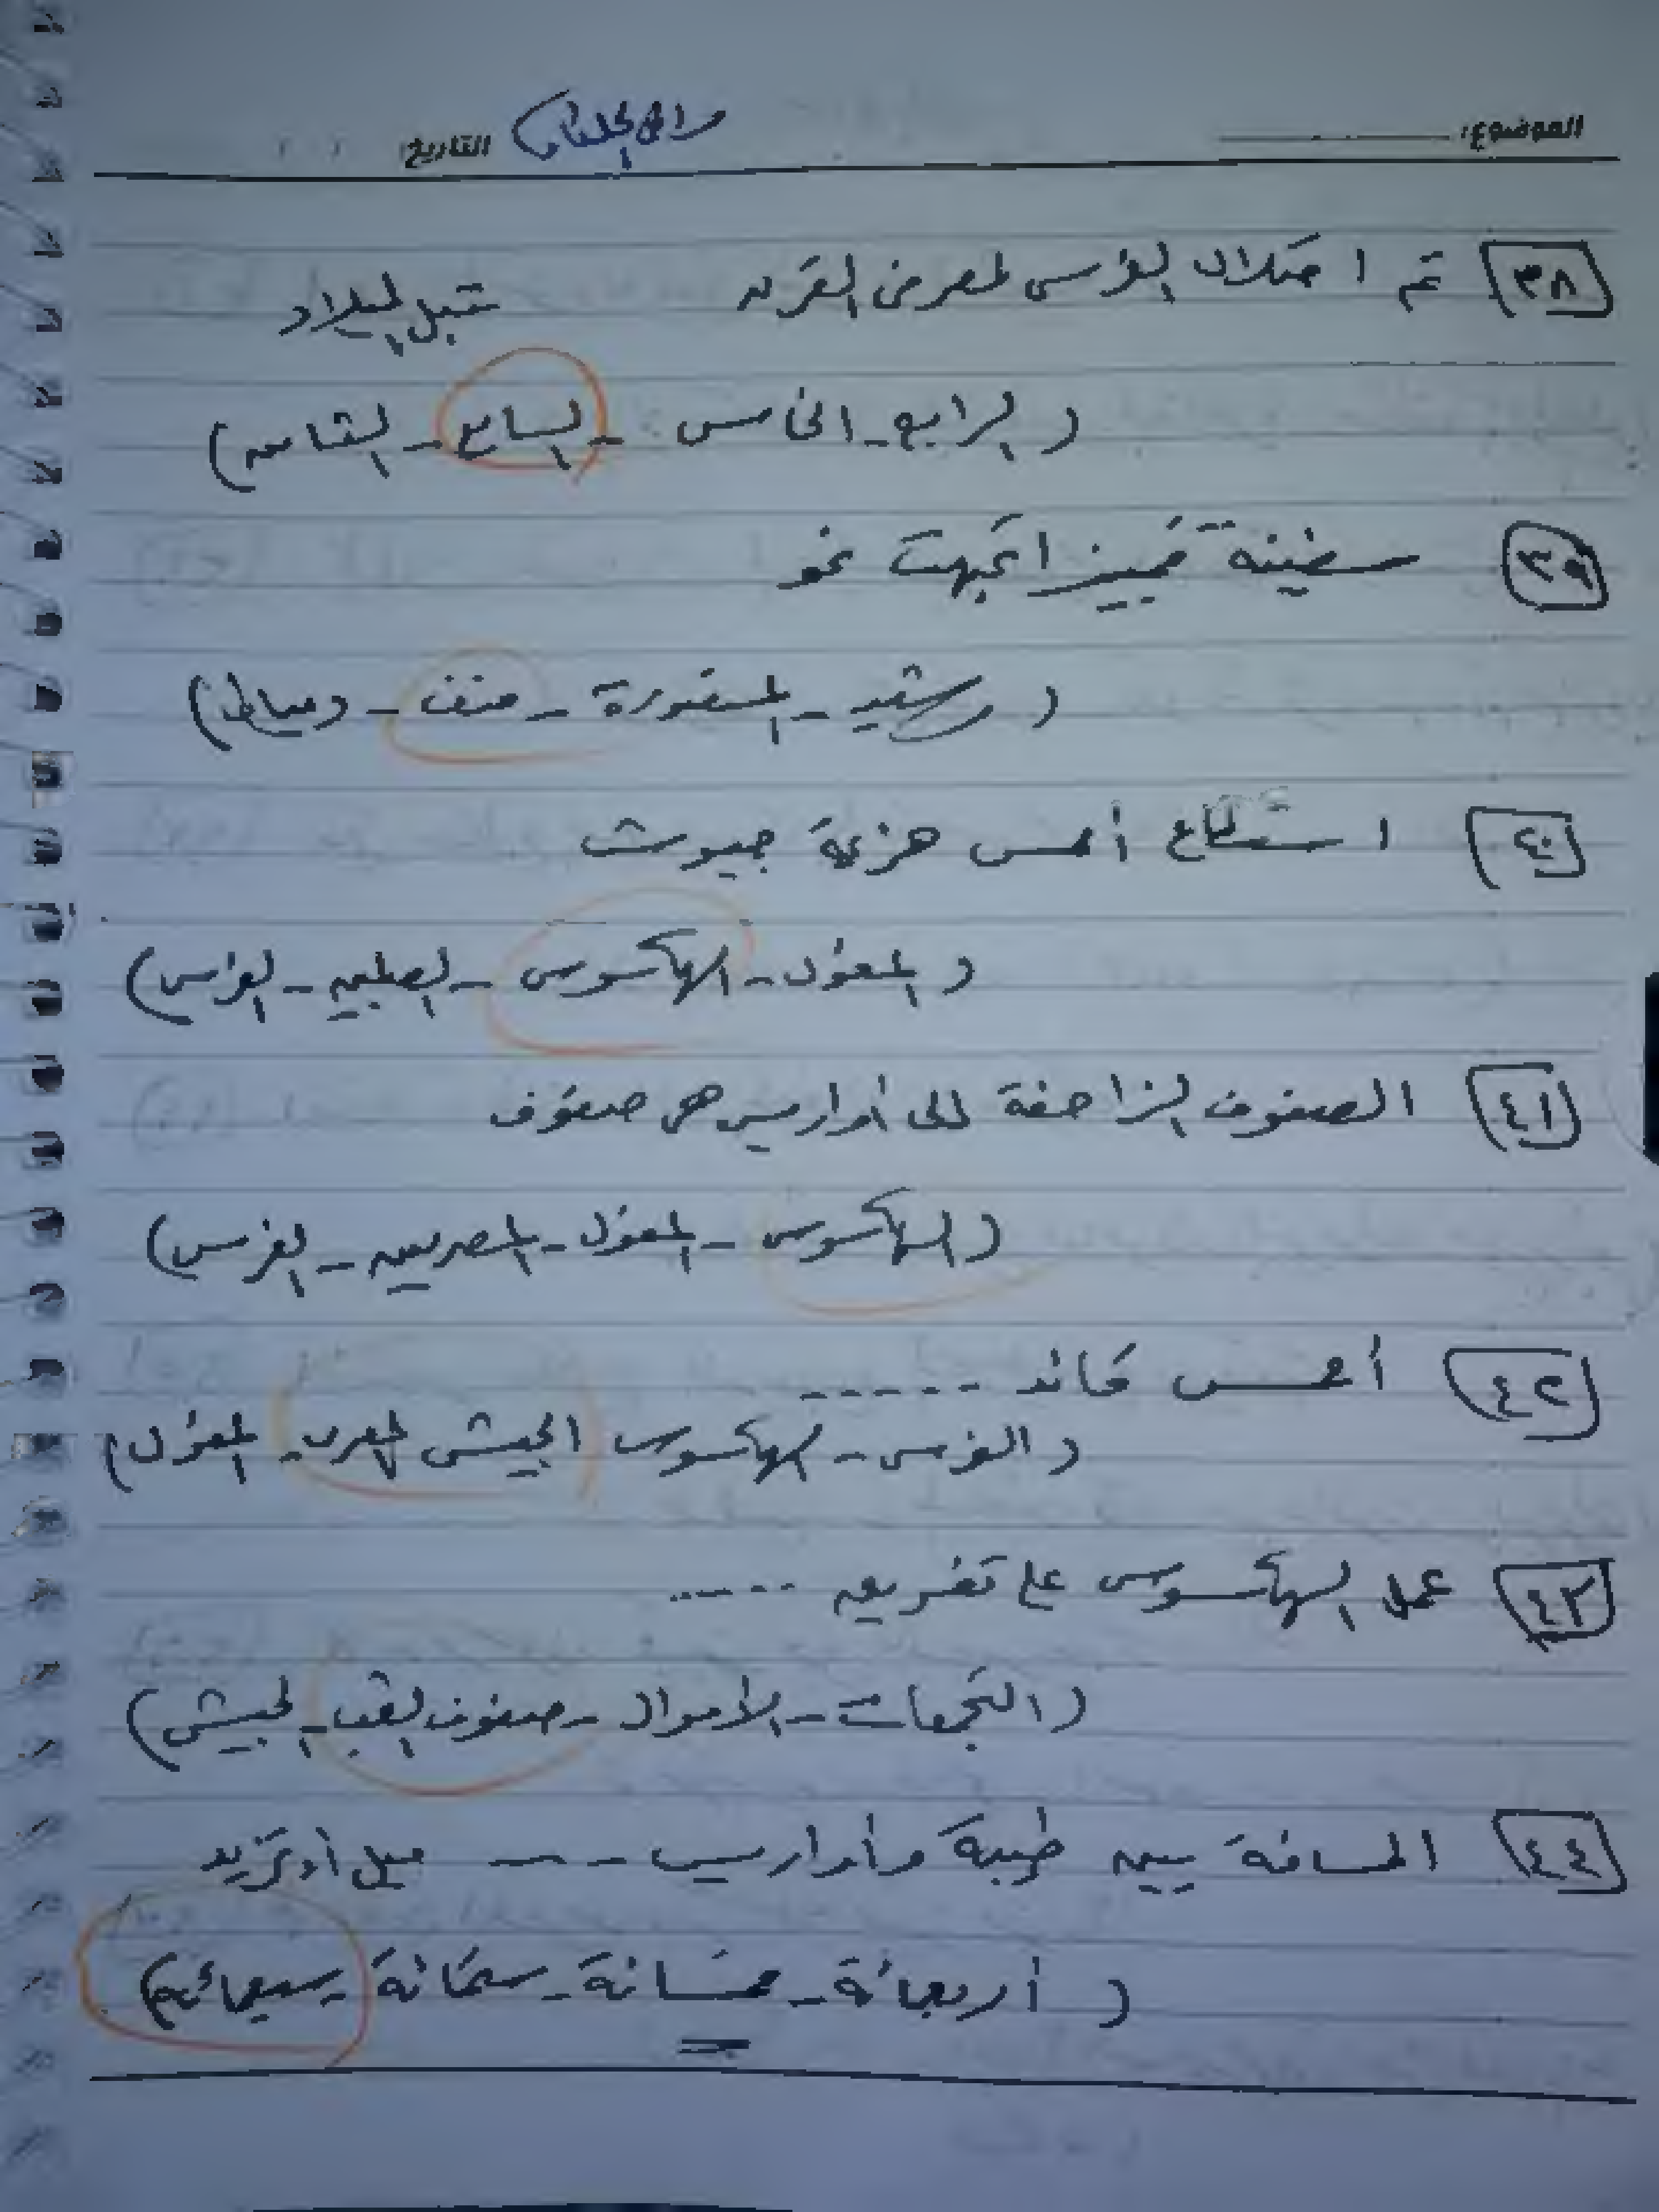 الموضوع: التاريخ / /
٣٨ تم احتلال الفرس لمصر فى القرن قبل الميلاد
( الرابع - الخامس - السابع - الثامن )
٣٩ سفينة قمبيز اتجهت نحو
( رشيد - المنصورة - منف - دمياط )
٤٠ استطاع أحمس هزيمة جيوش
( المغول - الهكسوس - الصليبين - الفرس )
٤١ الصفوف الزاحفة إلى أواريس هى صفوف
( الهكسوس - المغول - المصريين - الفرس )
٤٢ أحمس قائد ------
( الفرس - الهكسوس الجيش المصرى - المغول )
٤٣ عمل الهكسوس على تفريق -----
( التجمعات - الأموال - صفوف الشعب - الجيش )
٤٤ المسافة بين طيبة وأواريس ---- ميل أو تزيد
( أربعمائة - خمسمائة - ستمائة - سبعمائة )